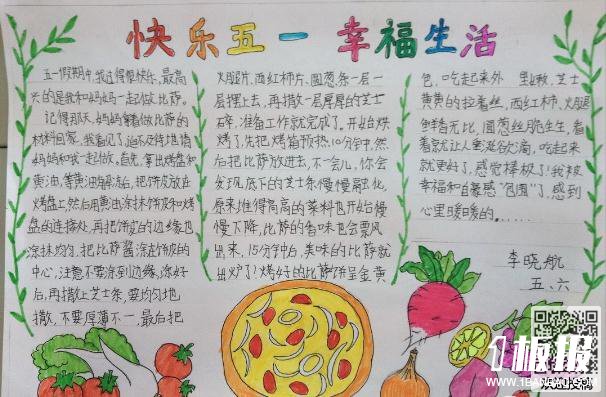 快乐五一 幸福生活
五一假期中,我过得很快乐,最高
兴的是我和妈妈一起做比萨。
记得那天,妈妈拿着做比萨的
材料回家,我看见了,迫不及待地请
妈妈和我一起做。首先,拿出烤盘和
黄油,等黄油解冻后,把饼皮放在
烤盘上,然后用黄油涂抹饼皮和烤
盘的连接处,再把饼皮的边缘也
涂抹均匀,把比萨酱涂在饼皮的
中心,注意不要涂到边缘,涂好
后,再撒上芝士条,要均匀地
撒,不要厚薄不一,最后把
火腿片、西红柿片、圆葱条一层一
层摆上去,再撒一层厚厚的芝士
碎,准备工作就完成了。开始烘
烤了,先把烤箱预热10分钟,然
后把比萨放进去,不一会儿,你会
发现,底下的芝士条慢慢融化,
原来堆得高高的菜料也开始慢
慢下降,比萨的香味也会飘风
出来,15分钟后,美味的比萨就
出炉了!烤好的比萨饼呈金黄
色,吃起来外 里嫩,芝士
黄黄的拉着丝,西红柿、火腿
鲜香无比,圆葱丝脆生生,看
着就让人垂涎欲滴,吃起来
就更好了,感觉棒极了!我被
幸福和自豪感“包围”了,感到
心里暖暖的……
李晓航
五、六
1板报
WWW.1BANBAO.COM